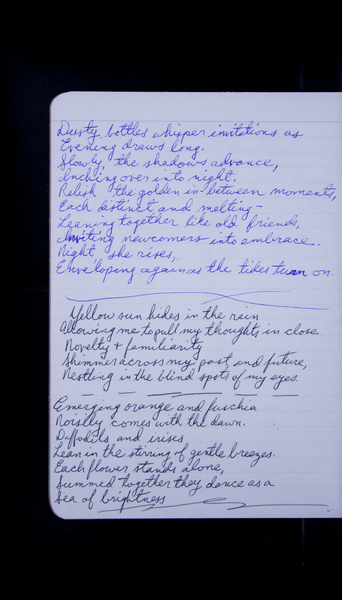 Dusty bottles whisper invitations as
Evening draws long.
Slowly, the shadows advance,
Inching over into night.
Relish the golden in-between moments,
Each distinct and melting -
Leaning together like old friends,
Inviting newcomers into embrace.
Night, she rises,
Enveloping against the tides turn on.
Yellow sun hides in the rain
Allowing me to pull my thoughts in close.
Novelty & familiarity
Shimmer across my past and future,
Nestling in the blind spots of my eyes.
Emerging orange and fuschia
Noisily comes with the dawn.
Daffodils and irises
Lean in the stirring of gentle breezes.
Each flower stands alone,
Summed together they dance as a
Sea of brightness